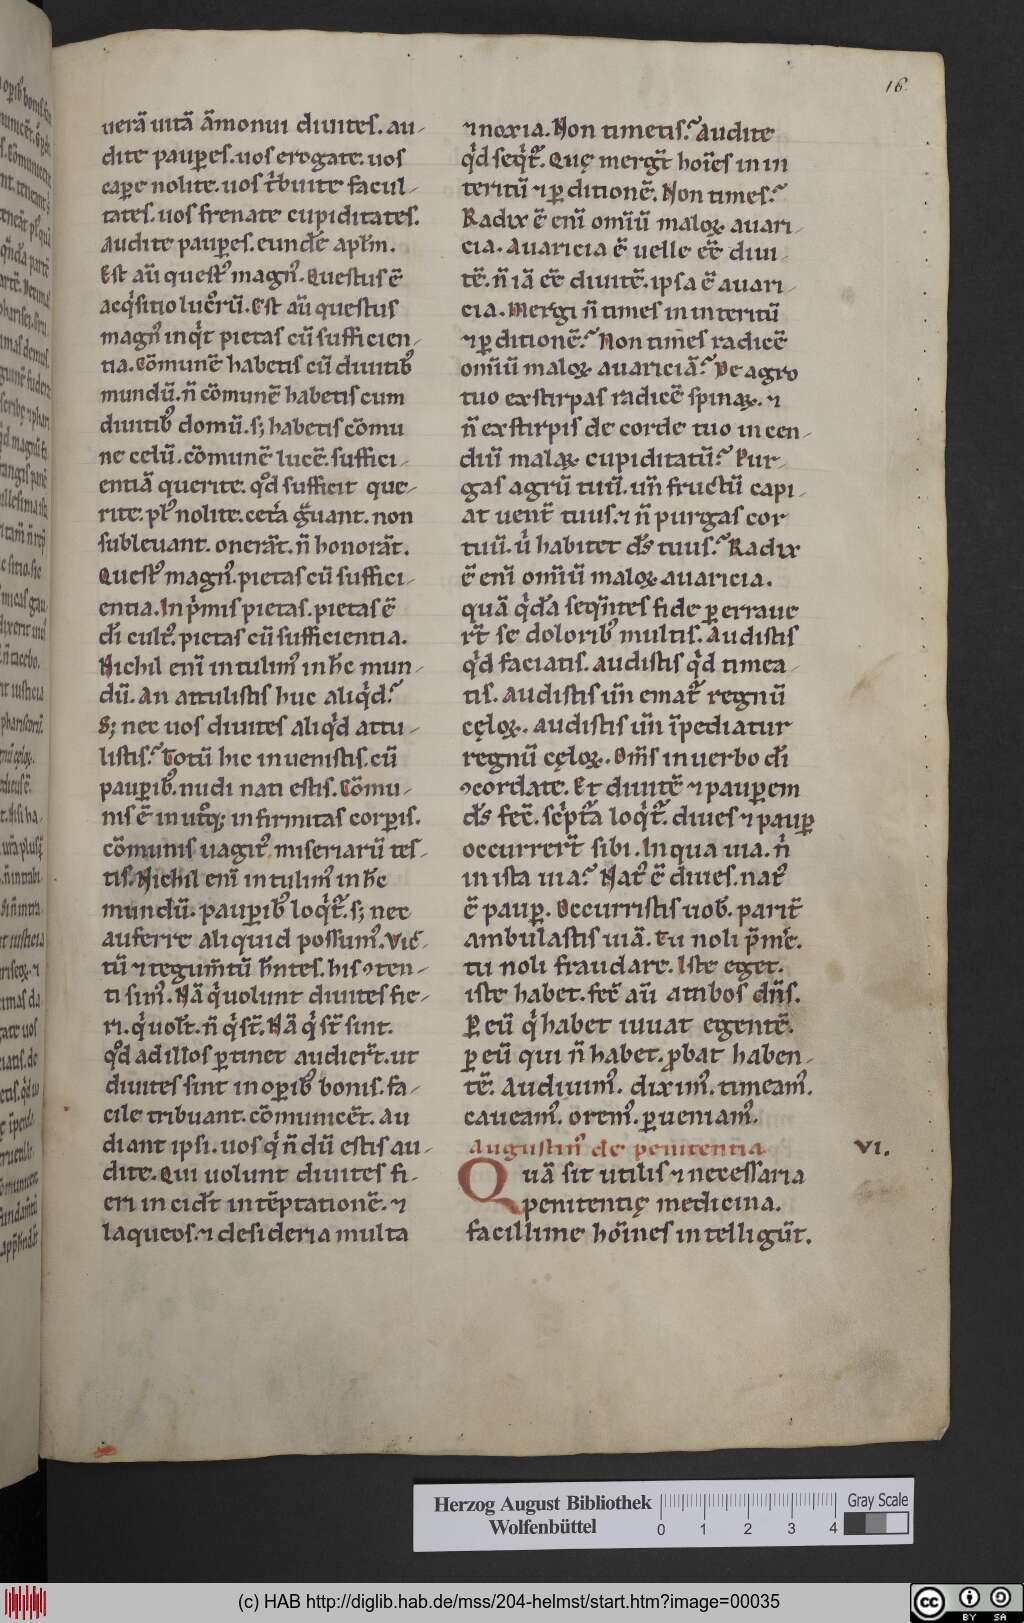 16.
uerā uitā āmonui diuites. au-
dite pauꝑes. uos erogate. uos
capere nolite. uos t'buite facul-
tates. uos frenate cupiditates.
Audite pauꝑes. eundē apl'm.
Est aū quest⁹ magn⁹. Questus ē
acq'sitio luc̄rū. Est aū questus
magn⁹ inq't pietas cū sufficien-
tia. Cōmunē habetis cū diuitib⁹
mundū. n̄ cōmunē habetis cum
diuitib⁹ domū. s; habetis cōmu
ne celū. cōmunē lucē. suffici-
entiā querite. qd̄ sufficit que-
rite. pl⁹ nolite. cet̄a g̃uant. non
subleuant. onerāt. n̄ honorāt.
Quest⁹ magn⁹. pietas cū suffici-
entia. In p'mis pietas. pietas ē
dī cult⁹. pietas cū sufficientia.
Nichil enī intulim⁹ in h̄c mun-
dū. An attulistis huc aliq'd?
S; nec uos diuites aliq'd attu-
listis? Totū hic inuenistis. cū
pauꝑib⁹. nudi nati estis. Cōmu-
nis ē in utq; infirmitas corꝑis.
cōmunis uagit⁹ miseriarū tes-
tis. Nichil enī intulim⁹ in h̄c
mundū. pauꝑib⁹ loq't̄. s; nec
auferre aliquid possum⁹. Vic̄-
tū ⁊ tegum̄tū h̄ntes. his ꝯten-
ti sim⁹. Nā q' uolunt diuites fie-
ri. q' uol't. n̄ q' st̄. Nā q' st̄ sint.
qd̄ ad illos ꝑtinet audier̄t. ut
diuites sint in oꝑib⁹ bonis. fa-
cile tribuant. cōmunicēt. Au
diant ipsi. uos q' n̄dū estis au-
dite. Qui uolunt diuites fi-
eri incid't in tēptationē. ⁊
laqueos. ⁊ desideria multa
⁊ noxia. Non timetis? Audite
q'd seq't̄. Quę merg̃t hoīes in in
teritū ⁊ ꝑditionē. Non times?
Radix ē enī omīū maloꝝ auari-
cia. Auaricia ē uelle eē diui-
tē. n̄ iā eē diuitē. ipsa ē auari-
cia. Mergi n̄ times in interitū
⁊ ꝑditionē? Non times radicē
omīū maloꝝ auariciā? De agro
tuo exstirpas radicē spinaꝝ. ⁊
n̄ exstirpis de corde tuo incen-
diū malaꝝ cupiditatū? Pur-
gas agrū tuū. un̄ fructū capi-
at uent̄ tuus. ⁊ n̄ purgas cor
tuū. u' habitet ds̄ tuus? Radix
ē enī omīū maloꝝ auaricia.
quā q'dā seq̄ntes fide ꝑ erraue
r̄t se dolorib⁹ multis. Audistis
q'd faciatis. audistis q'd timea-
tis. audistis un̄ emat̄ regnū
cęloꝝ. audistis un̄ īpediatur
regnū cęloꝝ. Om̄s in uerbo dī
ꝯcordate. Et diuitē ⁊ pauꝑem
ds̄ fec̄. sc'pt̄a loq't̄. diues ⁊ pauꝑ
occurrer̄t sibi. In qua uia. n'
in ista uia? Nat⁹ ē diues. nat⁹
ē pauꝑ. Occurristis uob̄. parit̄
ambulastis uiā. Tu noli p̄m'e.
tu noli fraudare. Iste eget.
iste habet. fec̄ aū ambos dn̄s.
Ꝑ eū q' habet iuuat egentē.
ꝑ eū qui n̄ habet. ꝓbat haben-
tē. Audiuim⁹. dixim⁹. timeam⁹.
caueam⁹. orem⁹. ꝑueniam⁹.
Augustin⁹ de penitentia VI.
Quā sit utilis ⁊ necessaria
penitentię medicina.
facillime hoīnes intelligūt.
Herzog August Bibliothek
Wolfenbüttel
0 1 2 3 4
Gray Scale
(c) HAB http://diglib.hab.de/mss/204-helmst/start.htm?image=00035
cc BY SA